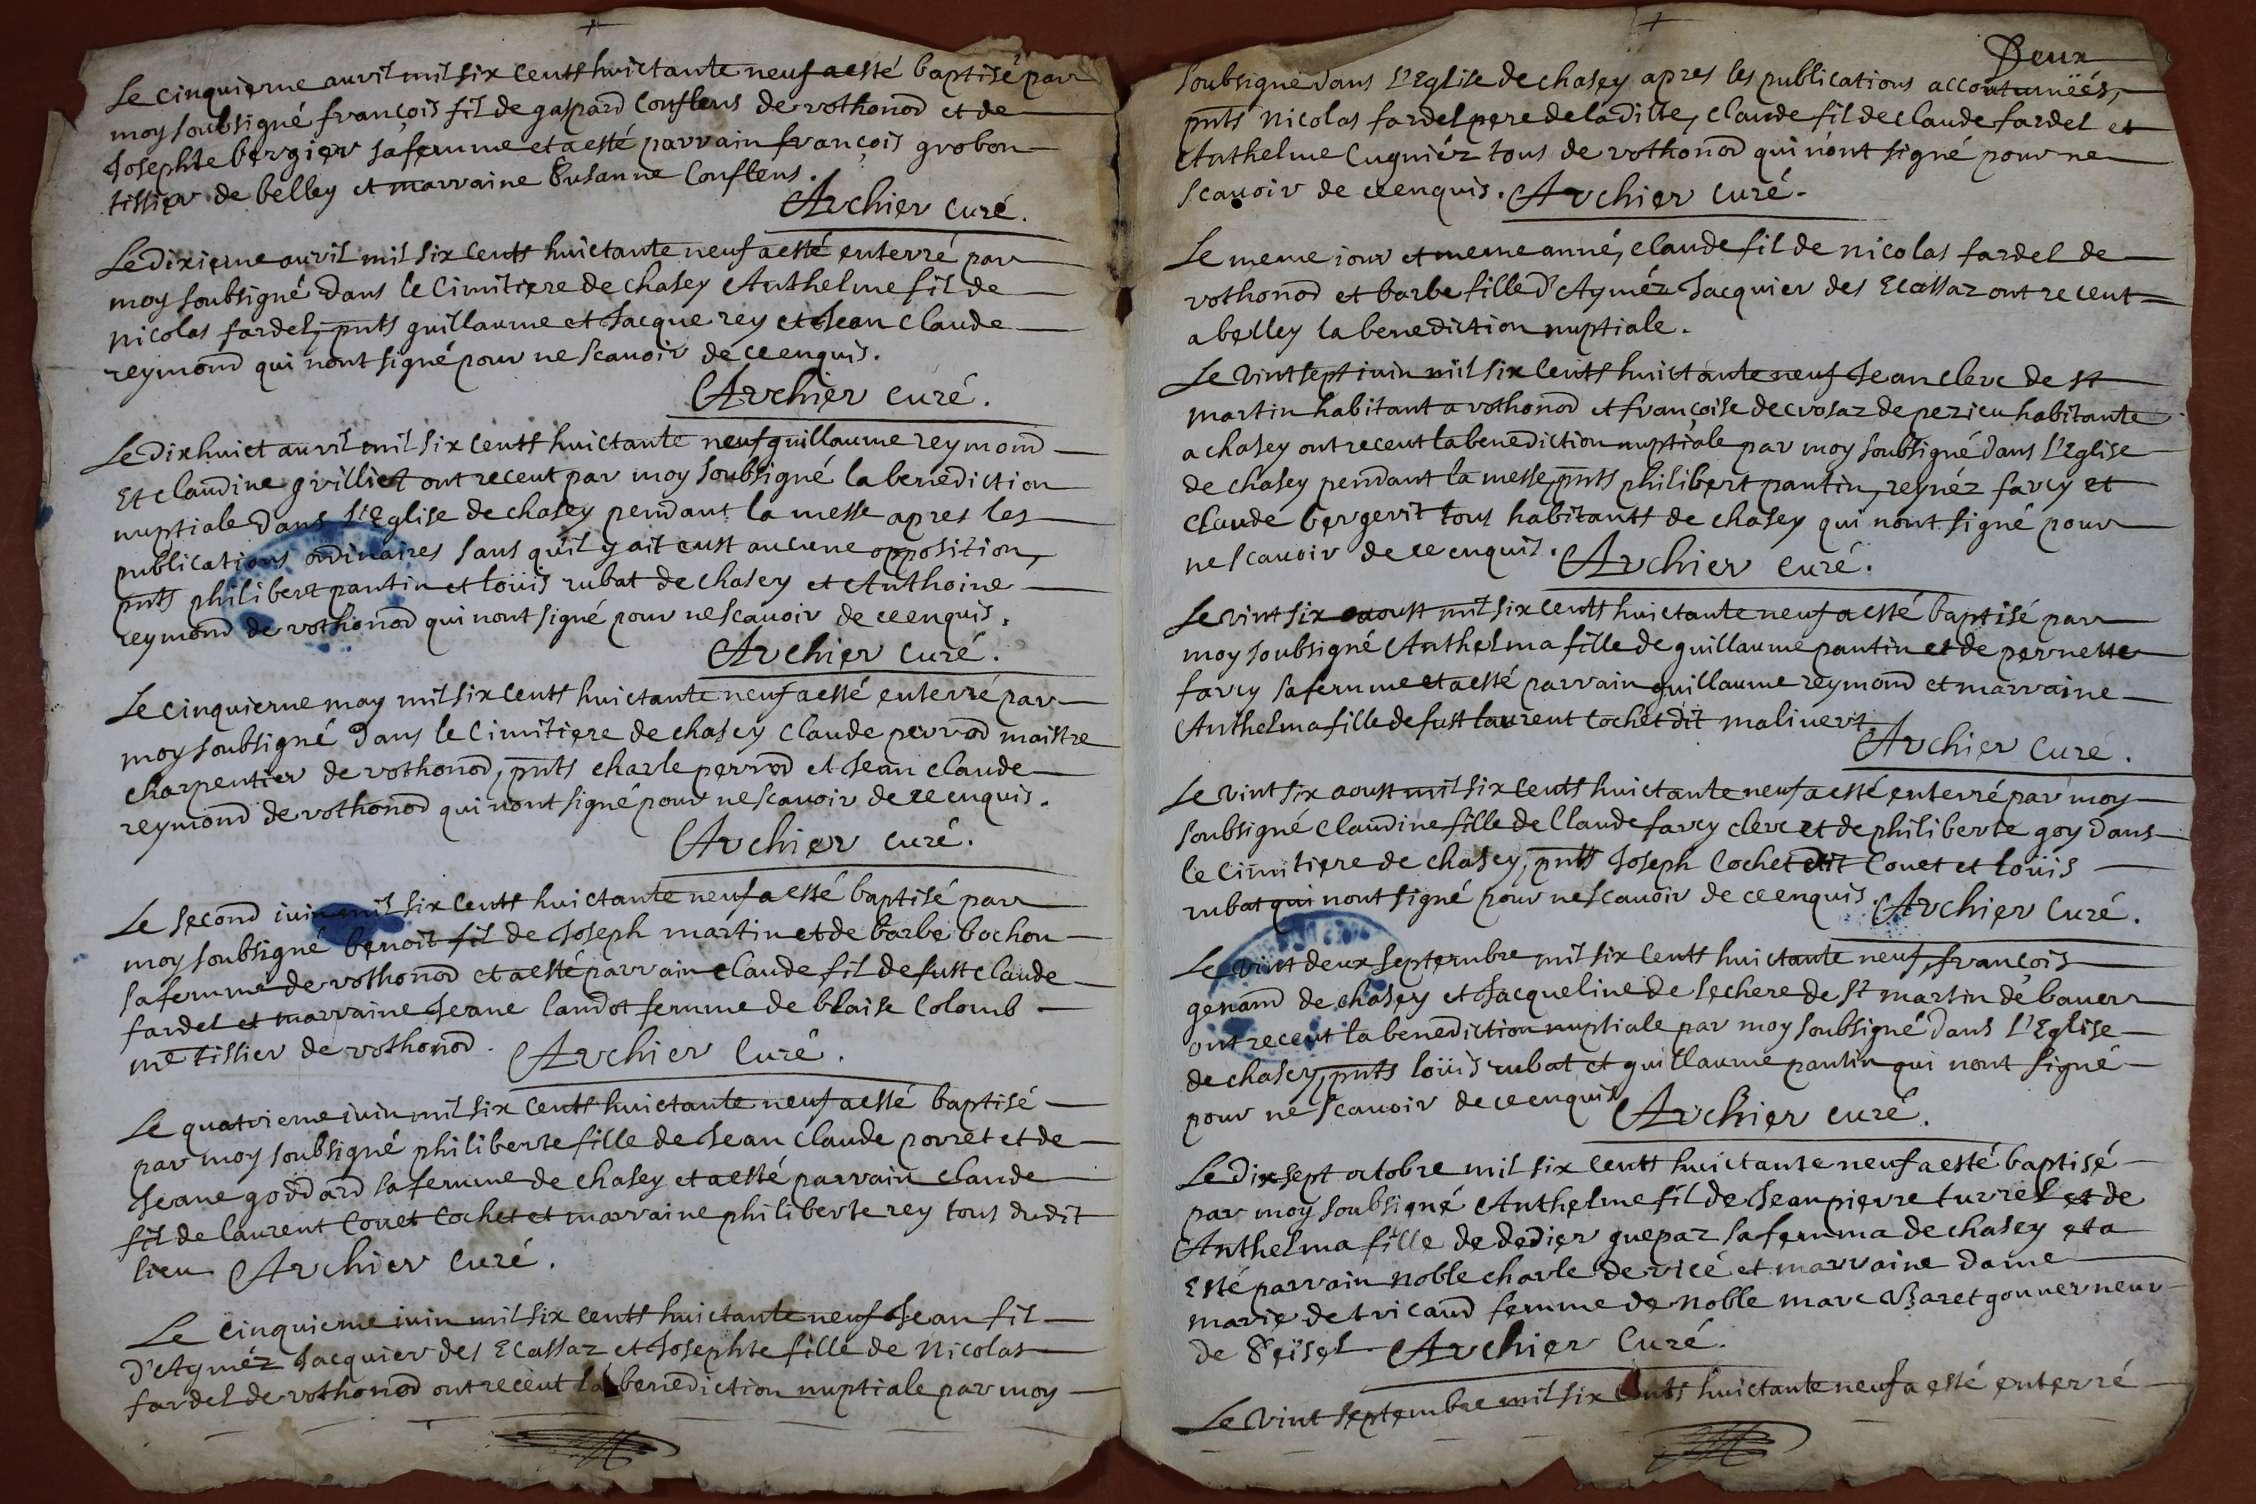 Le cinquieme avril mil six cents huictante neuf a esté baptisé par
moy soubsigné françois fil de gaspard Conflens de vothonod et de
Josephte bergier sa femme et a esté parrain françois grobon
tissier de belley et marraine Susanne Conflens.
Archier curé.
Le dixieme avril mil six cents huictante neuf a esté enterré par
moy soubsigné dans le Cimitiere de chasey Anthelme fil de
nicolas fardel, pnts guillaume et Jacque rey et Jean Claude
reymond qui n'ont signé pour ne scavoir de ce enquis.
Archier curé.
Le dixhuict avril mil six cents huictante neuf guillaume reymond
Et claudine grilliet ont receut par moy soubsigné la benediction
nuptiale dans l'Eglise de chasey pendant la messe apres les
publications ordinaires sans qu'il y ait eust aucune opposition,
pnts philibert pantin et loüis rubat de chasey et Anthoine
reymond de vothonod qui n'ont signé pour ne scavoir de ce enquis.
Archier curé.
Le cinquieme may mil six cents huictante neuf a esté enterré par
moy soubsigné dans le Cimitiere de chasey Claude perrod maistre
charpentier de vothonod, pnts charle perrod et Jean claude
reymond de vothonod qui n'ont signé pour ne scavoir de ce enquis.
Archier curé.
Le second iuin mil six cents huictante neuf a esté baptisé par
moy soubsigné benoit fil de Joseph martin et de barbe bochon
sa femme de vothonod et a esté parrain claude fil de fust claude
fardel et marraine Jeane landot femme de blaise Colomb
me tissier de vothonod. Archier Curé.
Le quatrieme iuin mil six cents huictante neuf a esté baptisé
par moy soubsigné philiberte fille de Jean Claude porret et de
Jeane goddard sa femme de chasey et a esté parrain claude
fil de laurent Couet Cochet et marraine philiberte rey tous dudit
lieu Archier Curé.
Le cinquieme iuin mil six cents huictante neuf Jean fil
d'Ayméz Jacquier des Ecassaz et Josephte fille de Nicolas
fardel de vothonod ont receut la benediction nuptiale par moy
Deux
soubsigné dans l'Eglise de chasey apres les publications accoutumëés,
pnts Nicolas fardel pere de la ditte, Claude fil de Claude fardel et
Anthelme Cugniéz tous de vothonod qui n'ont signé pour ne
scavoir de ce enquis. Archier curé.
Le meme iour et meme anné, claude fil de nicolas fardel de
vothonod et barbe fille d'Ayméz Jacquier des Ecassaz ont receut
a belley la benediction nuptiale.
Le vint sept iuin mil six cents huictante neuf Jean clerc de st
martin habitant a vothonod et françoise decrosaz de pezieu habitante
a chasey ont receut la benediction nuptiale par moy soubsigné dans l'Eglise
de chasey pendant la messe, pnts philibert pantin, reynéz farcy et
claude bergerit tous habitants de chasey qui n'ont signé pour
ne scavoir de ce enquis. Archier curé.
Le vint six aoust mil six cents huictante neuf a esté baptisé par
moy soubsigné Anthelma fille de guillaume pantin et de pernette
farcy sa femme et a esté parrain guillaume reymond et marraine
Anthelma fille de fust laurent Cochet dit malivert.
Archier Curé.
Le vint six aoust mil six cents huictante neuf a esté enterré par moy
soubsigné claudine fille de Claude farcy clerc et de philiberte goy dans
le Cimitiere de chasey, pnts Joseph Cochet dit Couet et loüis
rubat qui n'ont signé pour ne scavoir de ce enquis. Archier Curé.
Le vint deux septembre mil six cents huictante neuf, françois
genand de chasey et Jacqueline de lechere de st martin de bavers
ont receut la benediction nuptiale par moy soubsigné dans l'Eglise
de chasey, pnts loüis rubat et guillaume pantin qui n'ont signé
pour ne scavoir de ce enquis Archier curé.
Le dix sept octobre mil six cents huictante neuf a esté baptisé
par moy soubsigné Anthelme fil de Jean pierre turrel et de
Anthelma fille de dedier guepaz sa femma de chasey et a
Esté parrain noble charle de vicé et marraine dame
marie de tricaud femme de noble marc gouverneur
de Seïsel Archier Curé.
Le vint septembre mil six cents huictante neuf a esté enterré